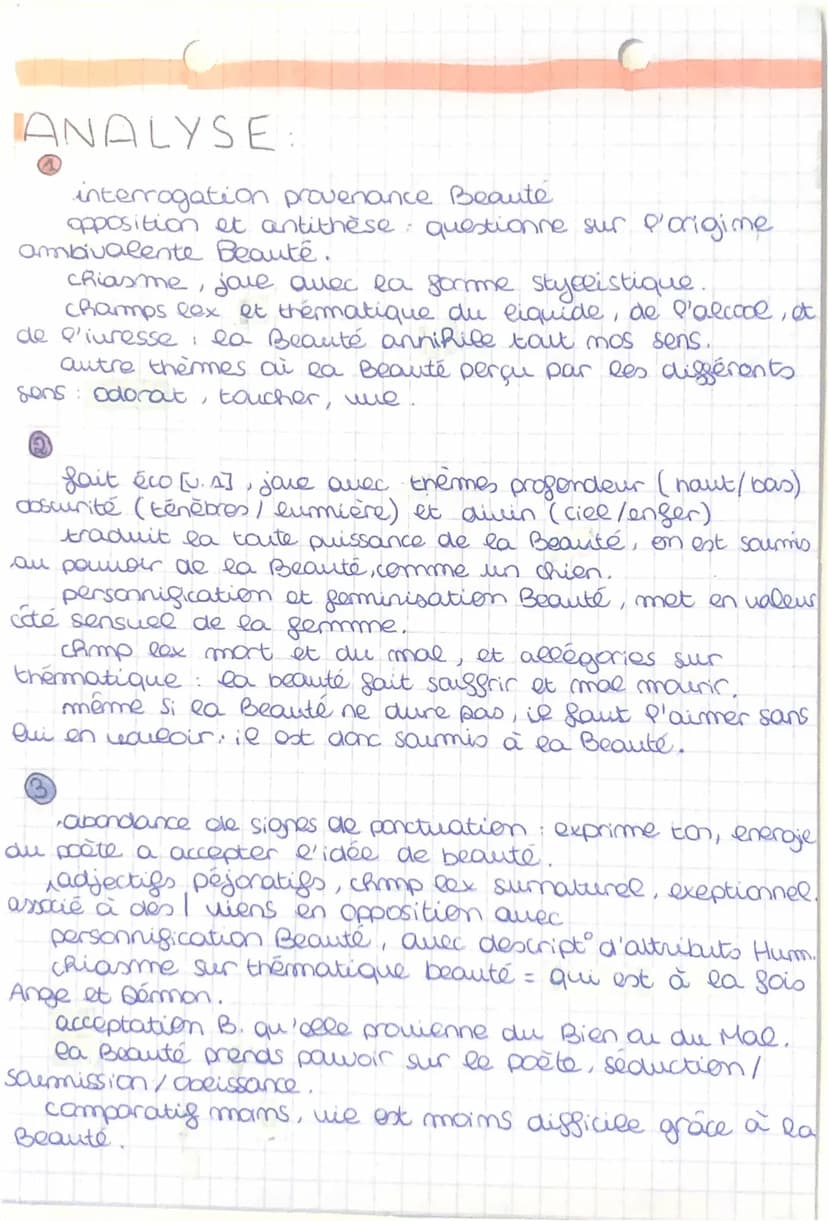 ANALYSE :
1
interrogation provenance Beauté
opposition et antithèse : questionne sur l'origine
ambivalente Beauté.
chiasme, joue avec la forme stylistique.
champs lex et thématique du liquide, de l'alcool, et
de l'ivresse : la Beauté annihile tout nos sens.
autre thèmes où la Beauté perçu par les différents
sens : odorat, toucher, vue.
2
fait éco [v.1], joue avec thèmes profondeur (haut/bas)
obscurité (ténèbres / lumière) et divin (ciel/enfer)
traduit la toute puissance de la Beauté, on est soumis
au pouvoir de la Beauté, comme un chien.
personnification et feminisation Beauté, met en valeur
côté sensuel de la femme.
chmp lex mort et du mal, et allégories sur
thématique : la beauté fait souffrir et mal mourir.
même si la Beauté ne dure pas, il faut l'aimer sans
lui en vouloir, il est donc soumis à la Beauté.
3
abondance de signes de ponctuation : exprime ton, energie
du poète a accepter l'idée de beauté.
adjectifs péjoratifs, chmp lex surnaturel, exeptionnel.
associé à des / viens en opposition avec
personnification Beauté, avec descript° d'attributs Hum.
chiasme sur thématique beauté = qui est à la fois
Ange et Démon.
acceptation B. qu'elle provienne du Bien ou du Mal.
la Beauté prends pouvoir sur le poète, séduction /
soumission / obeissance.
comparatif moins, vie est moins difficile grâce à la
Beauté.